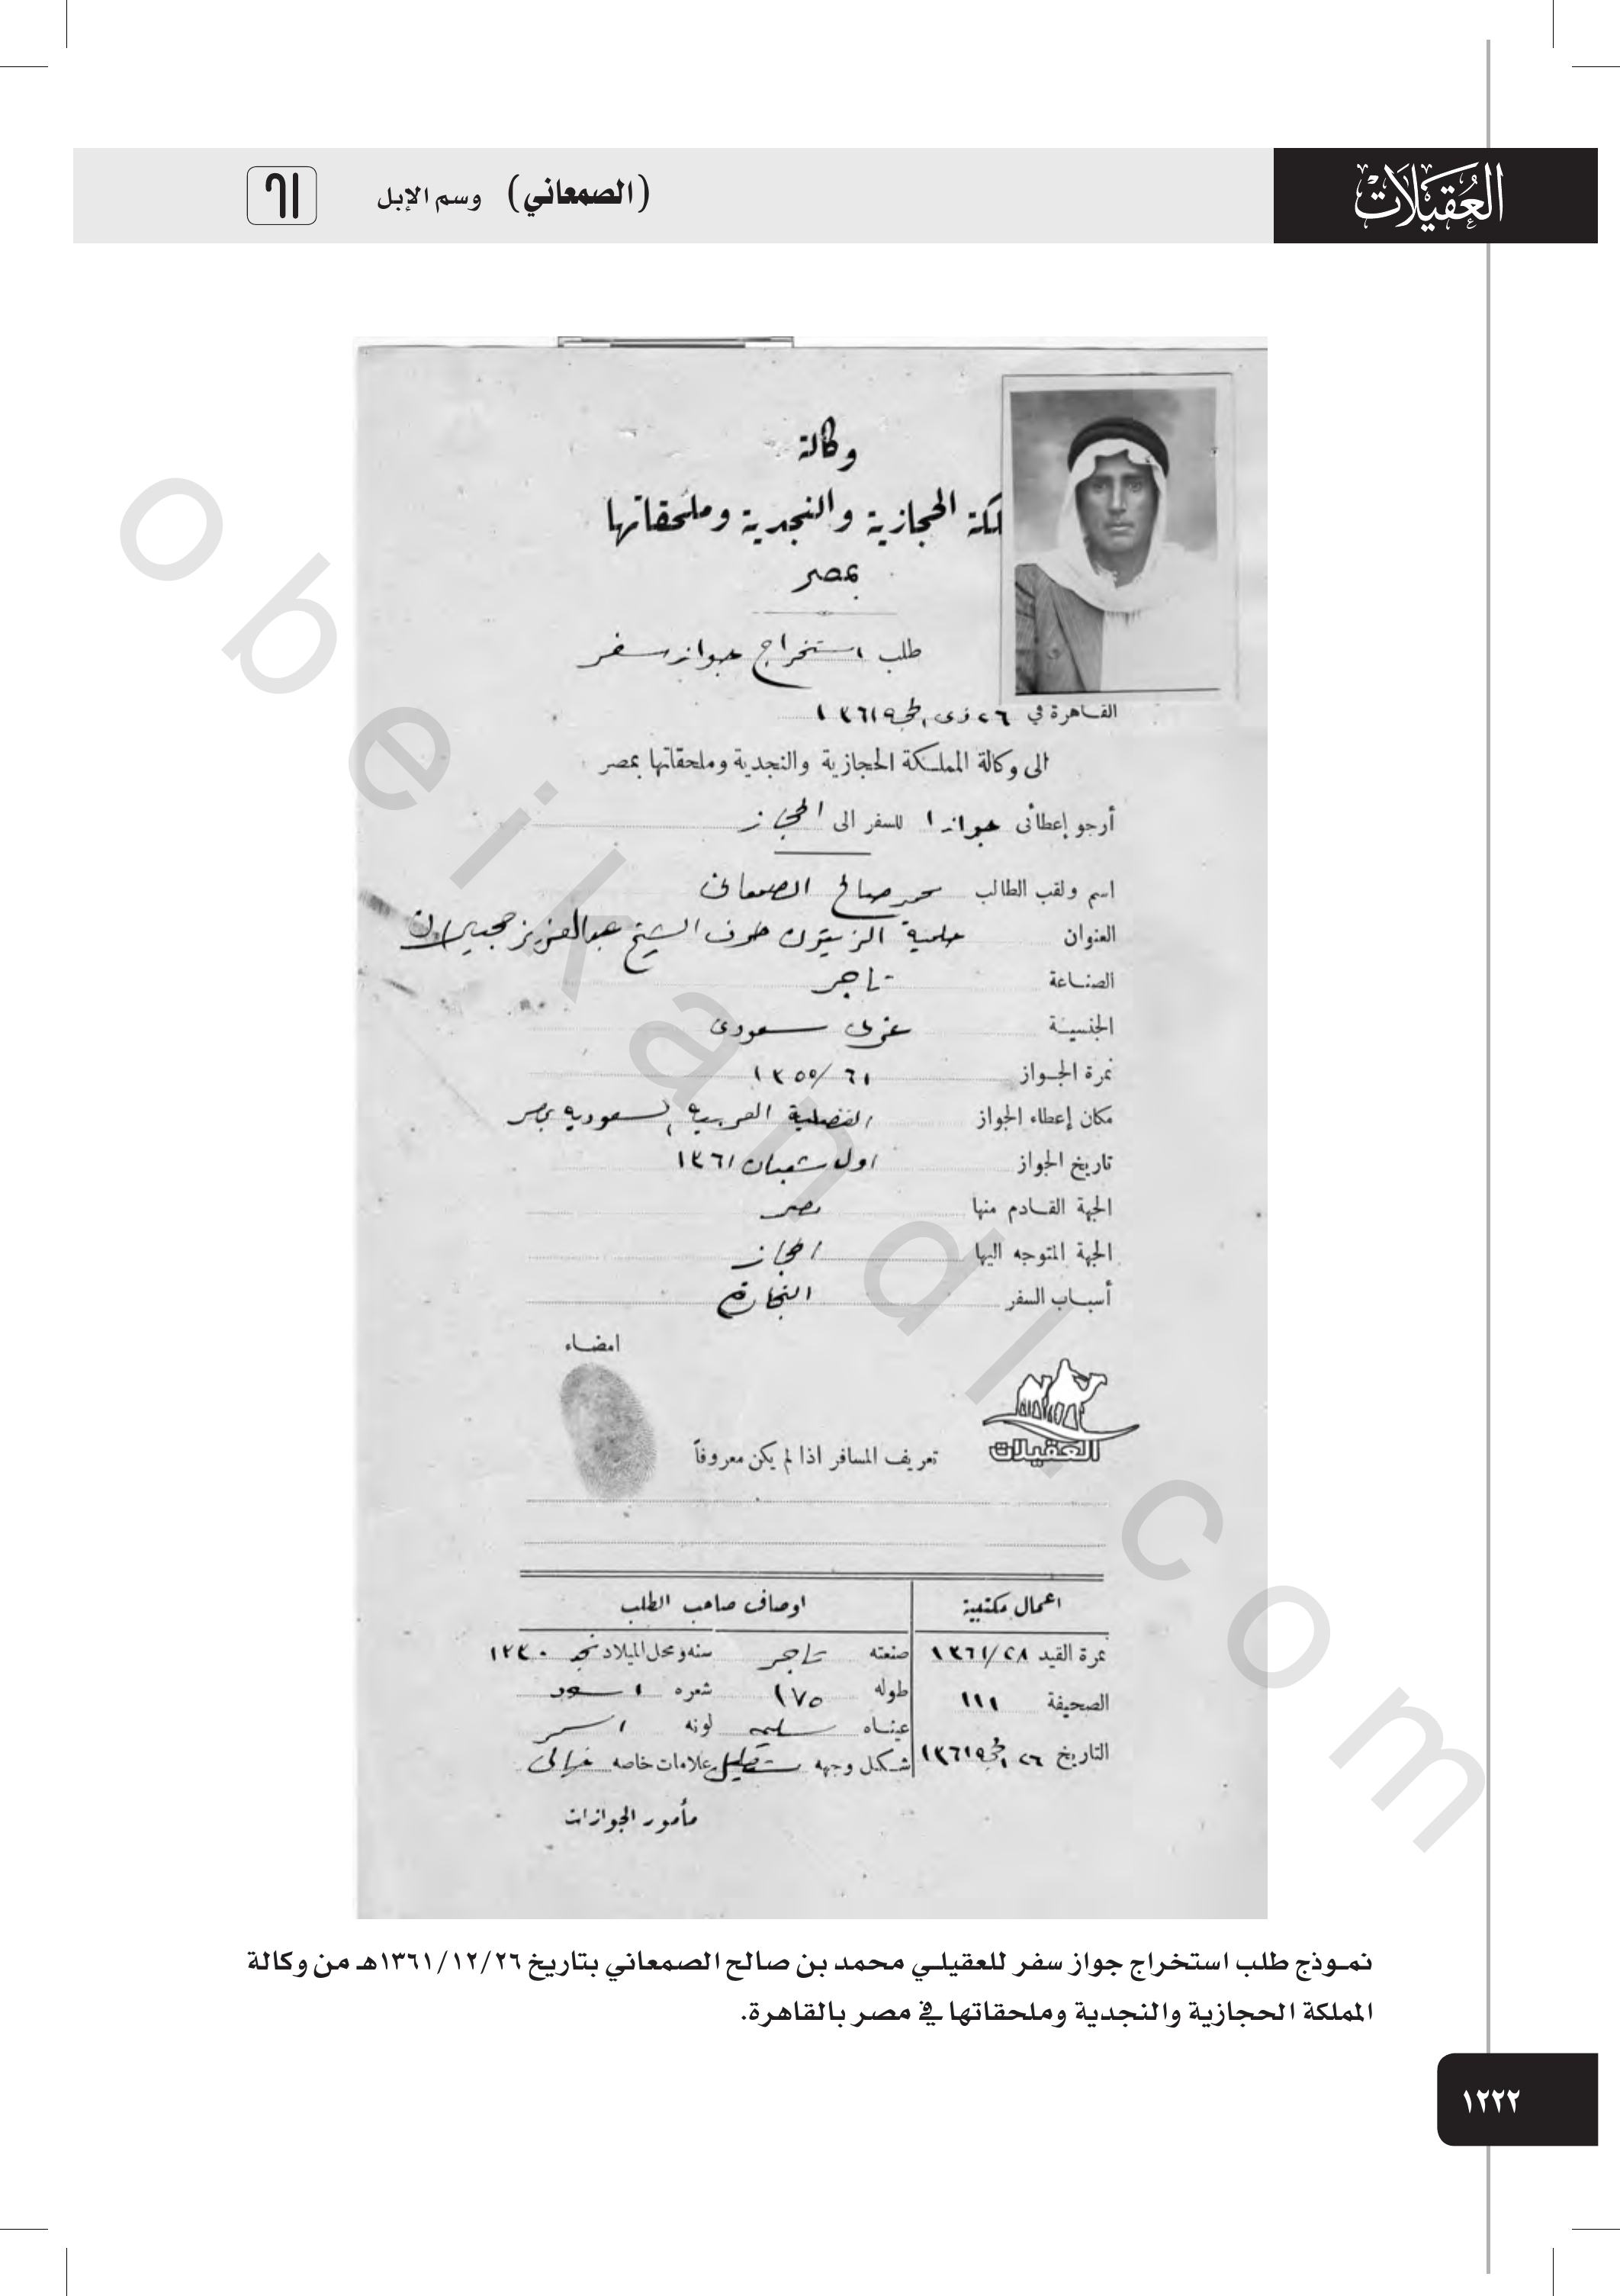 العُقَيْلَاتْ
(الصمعاني) وسم الإبل
وكالة
لكة الحجازية والنجدية وملحقاتها
بمصر
طلب استخراج جواز سفر
القاهرة في ٢٦ ذى الحجة ١٣٦١
الى وكالة المملكة الحجازية والنجدية وملحقاتها بمصر
أرجو إعطائى جوازا للسفر الى الحجاز
اسم ولقب الطالب محمد صالح الصمعانى
العنوان حلمية الزيتون طرف الشيخ عبدالعزيز
الصناعة تاجر
الجنسية عربى سعودى
نمرة الجواز ٦١/١٣٥٥
مكان إعطاء الجواز القنصلية العربية السعودية بمصر
تاريخ الجواز اول شعبان ١٣٦١
الجهة القادم منها مصر
الجهة المتوجه اليها الحجاز
أسباب السفر التجارة
امضاء
العقيلات
تعريف المسافر اذا لم يكن معروفاً
اعمال مكتبية
اوصاف صاحب الطلب
نمرة القيد ٢٨/١٣٦١ صنعته تاجر سنه ومحل الميلاد نجد ١٣٣٠
الصحيفة ١١١ طوله ١٧٥ شعره اسود
عيناه سليمه لونه اسمر
التاريخ ٢٦ الحجة ١٣٦١ شكل وجهه مستطيل علامات خاصه
مأمور الجوازات
نمـوذج طلب استخراج جواز سفر للعقيلـي محمد بن صالح الصمعاني بتاريخ ١٣٦١/١٢/٢٦هـ من وكالة
المملكة الحجازية والنجدية وملحقاتها في مصر بالقاهرة.
١٢٢٢
obeikandl.com